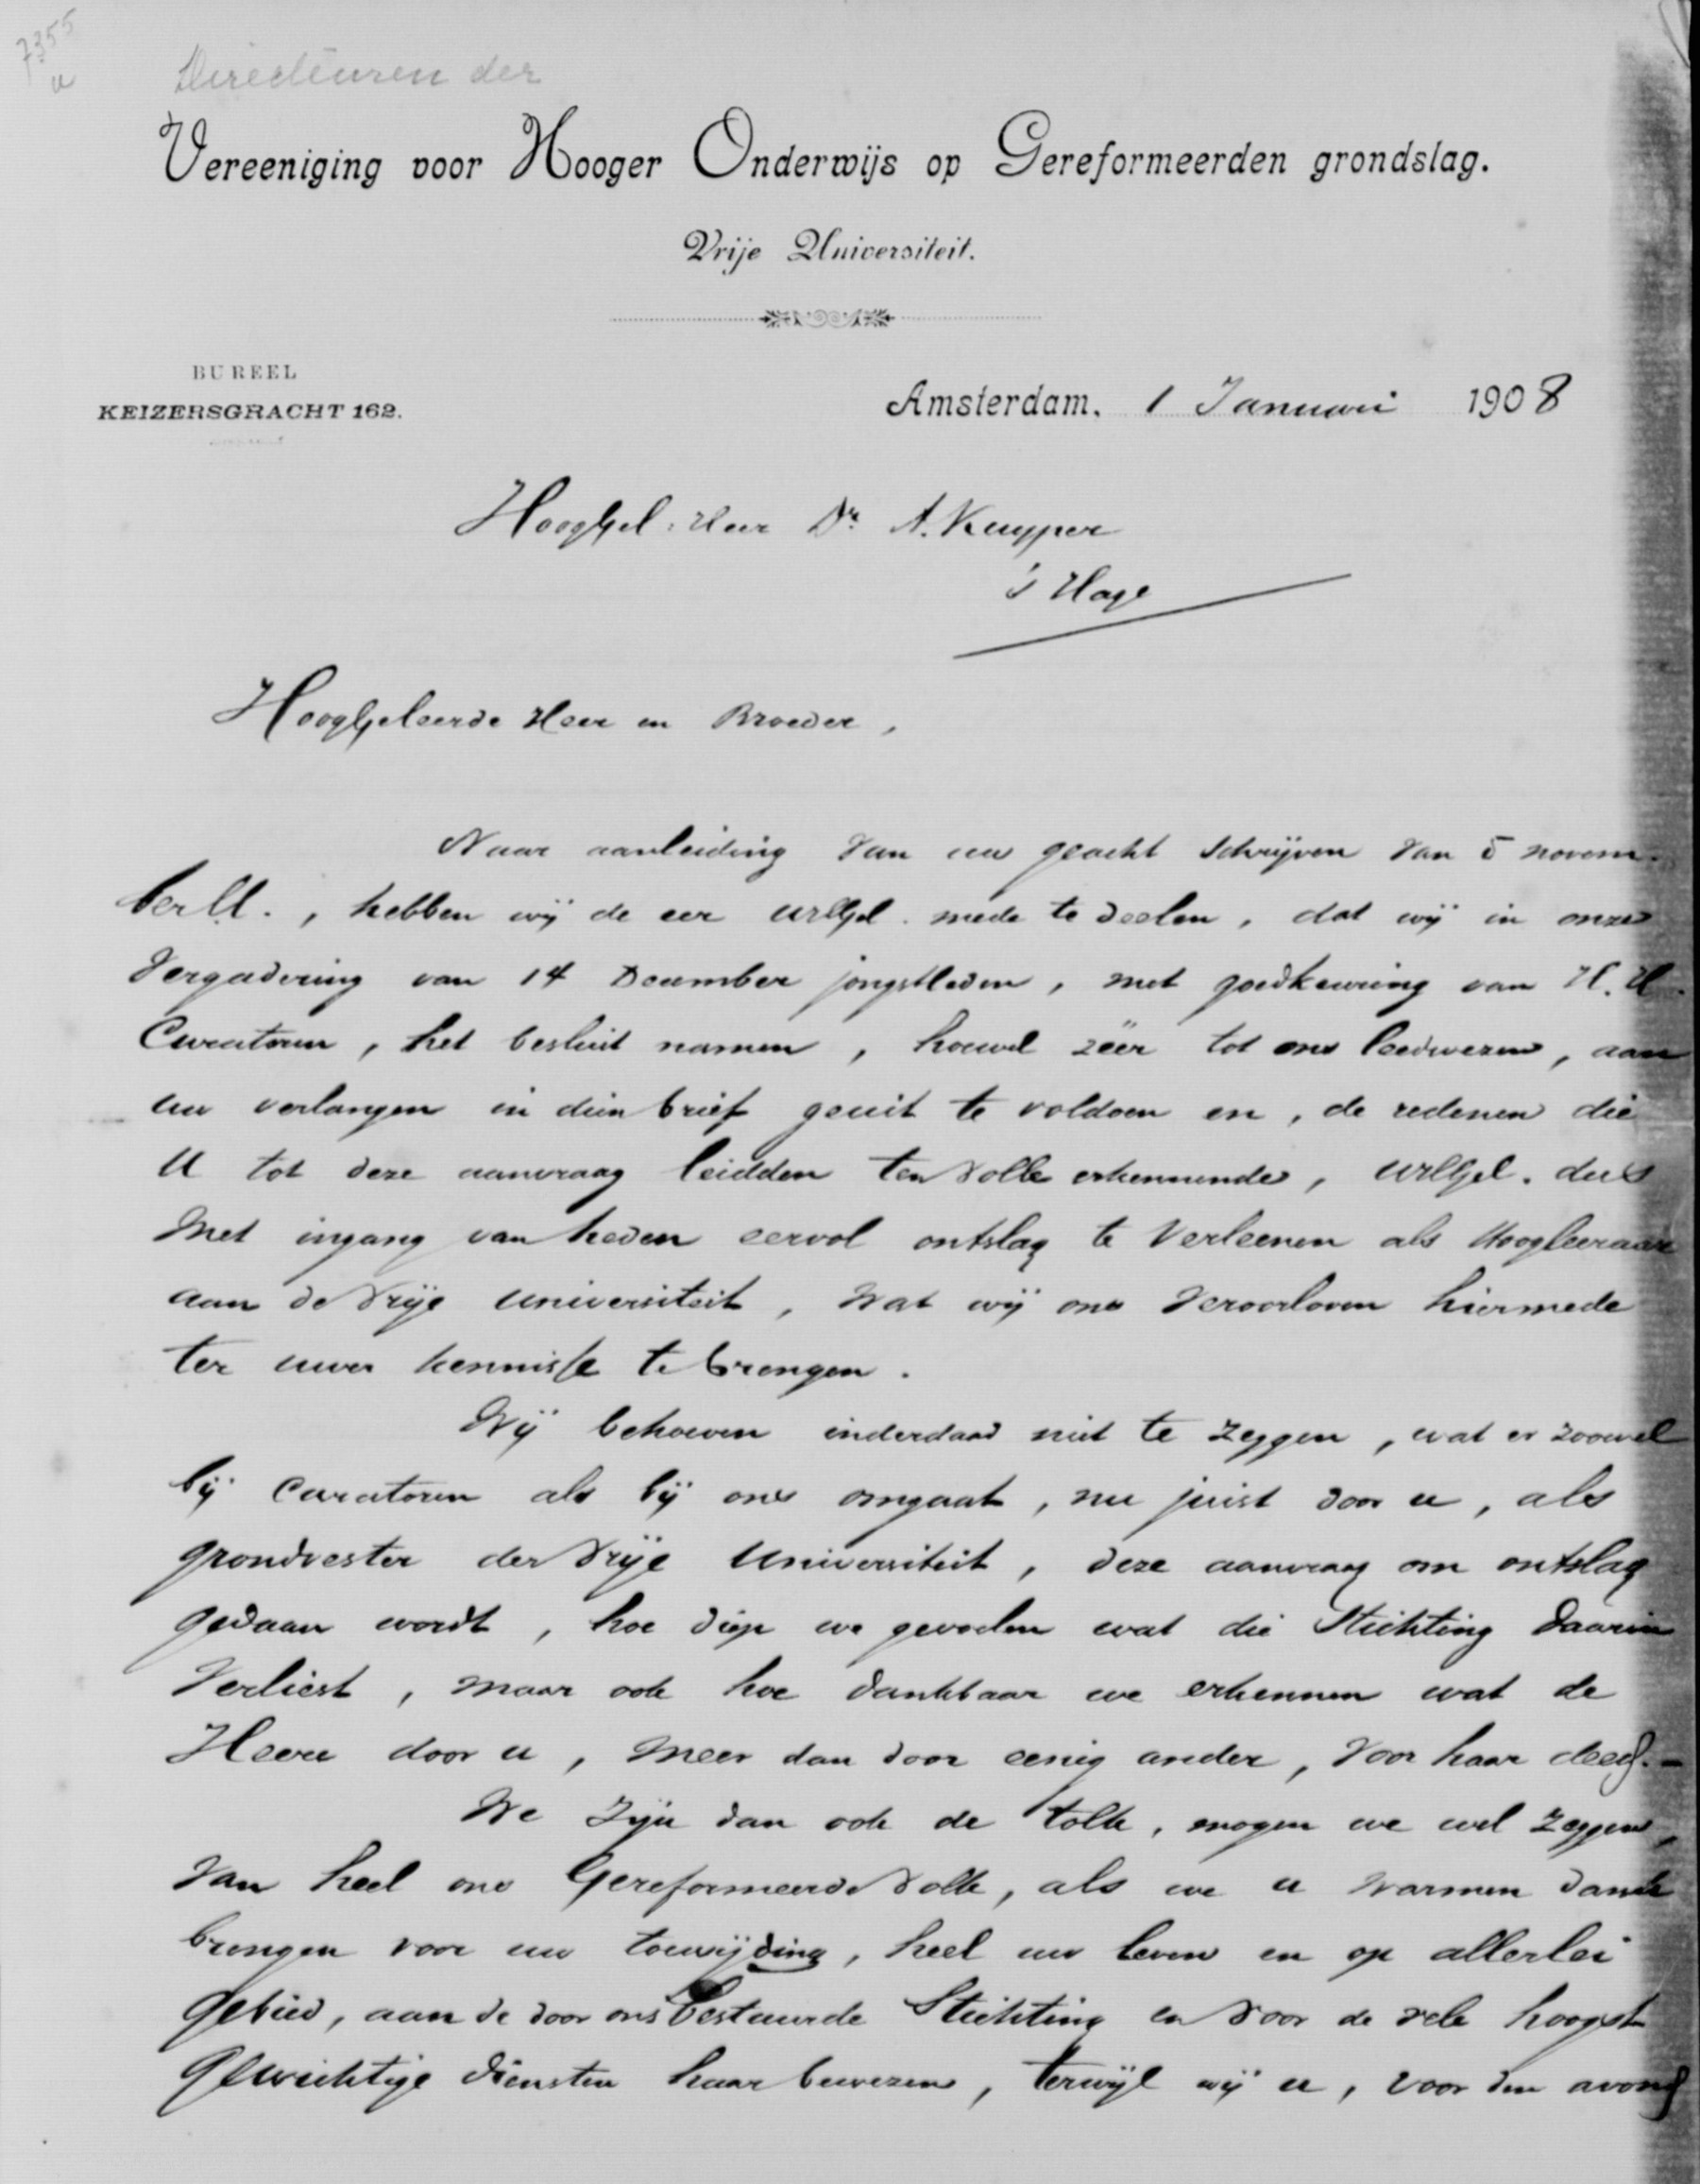 7355
a
Directeuren der
Vereeniging voor Hooger Onderwijs op Gereformeerden grondslag.
Vrije Universiteit.
BUREEL
KEIZERSGRACHT 162.
Amsterdam, 1 Januari 1908
HoogGel. Heer Dr. A. Kuyper
's Hage
HoogGeleerde Heer en Broeder,
Naar aanleiding van uw geacht schrijven van 5 novem-
ber l.l., hebben wij de eer UHGel. mede te deelen, dat wij in onze
Vergadering van 14 December jongstleden, met goedkeuring van H.H.
Curatoren, het besluit namen, hoewel zéér tot ons leedwezen, aan
uw verlangen in dien brief geuit te voldoen en, de redenen die
U tot deze aanvraag leidden ten volle erkennende, UHGel. dus
Met ingang van heden eervol ontslag te verleenen als Hoogleeraar
aan de Vrije Universiteit, Wat wij ons veroorloven hiermede
ter uwer kennisse te brengen.
Wij behoeven inderdaad niet te zeggen, wat er zoowel
bij Curatoren als bij ons omgaat, nu juist door u, als
grondvester der Vrije Universiteit, deze aanvraag om ontslag
gedaan wordt, hoe diep we gevoelen wat die Stichting daarin
Verliest, maar ook hoe dankbaar we erkennen wat de
Heere door u, meer dan door eenig ander, voor haar deed. -
We zijn dan ook de tolk, mogen we wel zeggen,
Van heel ons Gereformeerde Volk, als we u warmen dank
brengen voor uw toewijding, heel uw leven en op allerlei
Gebied, aan de door ons bestuurde Stichting en voor de vele hoogst
Gewichtige diensten haar bewezen, terwijl wij u, voor den avond